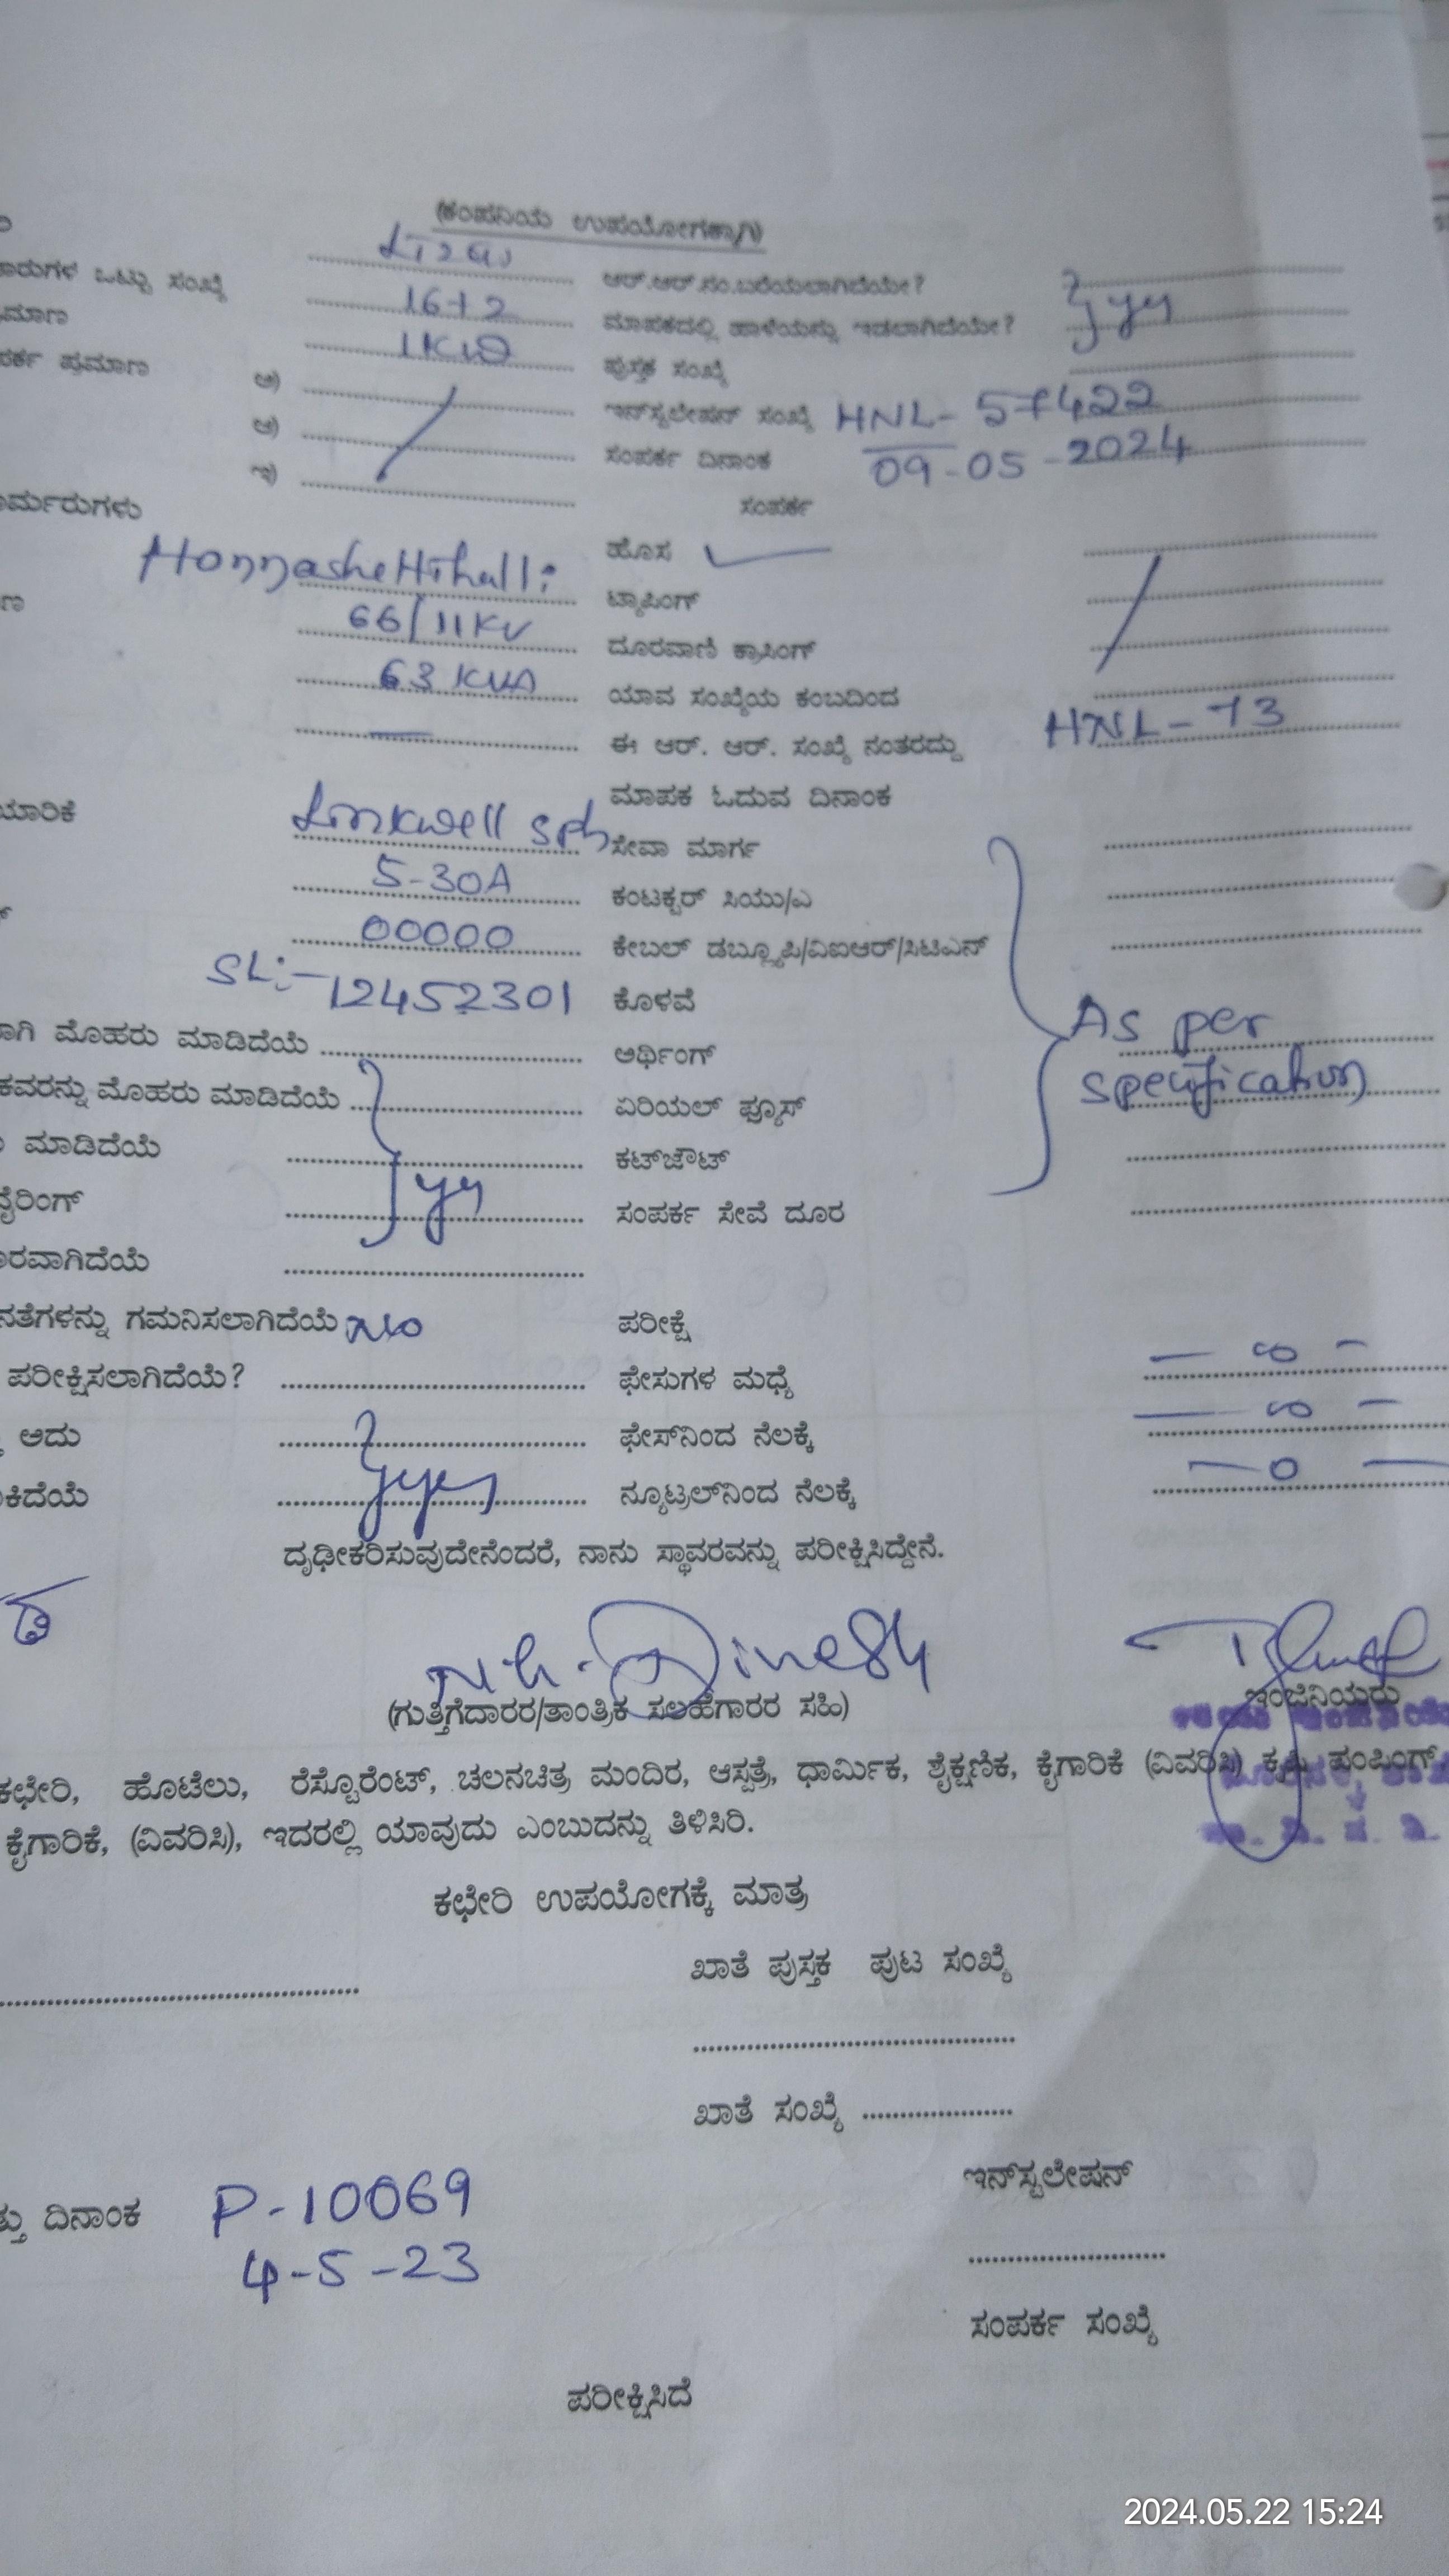 (ಕಂಪನಿಯ ಉಪಯೋಗಕ್ಕಾಗಿ)
ಆರ್.ಆರ್.ಸಂ.ಬರೆಯಲಾಗಿದೆಯೇ?
ಒಟ್ಟು ಸಂಖ್ಯೆ 16+2 ಮಾಪಕದಲ್ಲಿ ಹಾಳೆಯನ್ನು ಇಡಲಾಗಿದೆಯೇ? yes
1KW ಪುಸ್ತಕ ಸಂಖ್ಯೆ
ಪ್ರಮಾಣ ಅ) ಇನ್‌ಸ್ಟಲೇಷನ್ ಸಂಖ್ಯೆ HNL- 57422
ಆ) ಸಂಪರ್ಕ ದಿನಾಂಕ 09-05-2024
ಇ) ಸಂಪರ್ಕ
Honnashettihalli ಹೊಸ
66/11KV ಟ್ಯಾಪಿಂಗ್
ದೂರವಾಣಿ ಕ್ರಾಸಿಂಗ್
63 KVA ಯಾವ ಸಂಖ್ಯೆಯ ಕಂಬದಿಂದ
ಈ ಆರ್. ಆರ್. ಸಂಖ್ಯೆ ನಂತರದ್ದು HNL-73
ಮಾಪಕ ಓದುವ ದಿನಾಂಕ
Linkwell sph ಸೇವಾ ಮಾರ್ಗ
5-30A ಕಂಟಕ್ಟರ್ ಸಿಯು/ಎ
00000 ಕೇಬಲ್ ಡಬ್ಲ್ಯೂಪಿ/ವಿಐಆರ್/ಸಿಟಿಎನ್
SL:- 12452301 ಕೊಳವೆ
ಮೊಹರು ಮಾಡಿದೆಯೆ ಅರ್ಥಿಂಗ್ As per
ಕವರನ್ನು ಮೊಹರು ಮಾಡಿದೆಯೆ ಏರಿಯಲ್ ಫ್ಯೂಸ್ specification
ಮಾಡಿದೆಯೆ ಕಟ್‌ಔಟ್
ವೈರಿಂಗ್ yes ಸಂಪರ್ಕ ಸೇವೆ ದೂರ
ಗಮನಿಸಲಾಗಿದೆಯೆ No ಪರೀಕ್ಷೆ
ಪರೀಕ್ಷಿಸಲಾಗಿದೆಯೆ? ಫೇಸುಗಳ ಮಧ್ಯೆ — ∞ —
ಅದು ಫೇಸ್‌ನಿಂದ ನೆಲಕ್ಕೆ — ∞ —
yes ನ್ಯೂಟ್ರಲ್‌ನಿಂದ ನೆಲಕ್ಕೆ — 0 —
ದೃಢೀಕರಿಸುವುದೇನೆಂದರೆ, ನಾನು ಸ್ಥಾವರವನ್ನು ಪರೀಕ್ಷಿಸಿದ್ದೇನೆ.
N.h. Dinesh
(ಗುತ್ತಿಗೆದಾರರ/ತಾಂತ್ರಿಕ ಸಲಹೆಗಾರರ ಸಹಿ) ಇಂಜಿನಿಯರು
ಕಛೇರಿ, ಹೊಟೆಲು, ರೆಸ್ಟೊರೆಂಟ್, ಚಲನಚಿತ್ರ ಮಂದಿರ, ಆಸ್ಪತ್ರೆ, ಧಾರ್ಮಿಕ, ಶೈಕ್ಷಣಿಕ, ಕೈಗಾರಿಕೆ (ವಿವರಿಸಿ) ಕೃಷಿ ಪಂಪಿಂಗ್
ಕೈಗಾರಿಕೆ, (ವಿವರಿಸಿ), ಇದರಲ್ಲಿ ಯಾವುದು ಎಂಬುದನ್ನು ತಿಳಿಸಿರಿ.
ಕಛೇರಿ ಉಪಯೋಗಕ್ಕೆ ಮಾತ್ರ
ಖಾತೆ ಪುಸ್ತಕ ಪುಟ ಸಂಖ್ಯೆ
ಖಾತೆ ಸಂಖ್ಯೆ
ಇನ್‌ಸ್ಟಲೇಷನ್
ದಿನಾಂಕ P-10069
4-5-23
ಸಂಪರ್ಕ ಸಂಖ್ಯೆ
ಪರೀಕ್ಷಿಸಿದೆ
2024.05.22 15:24